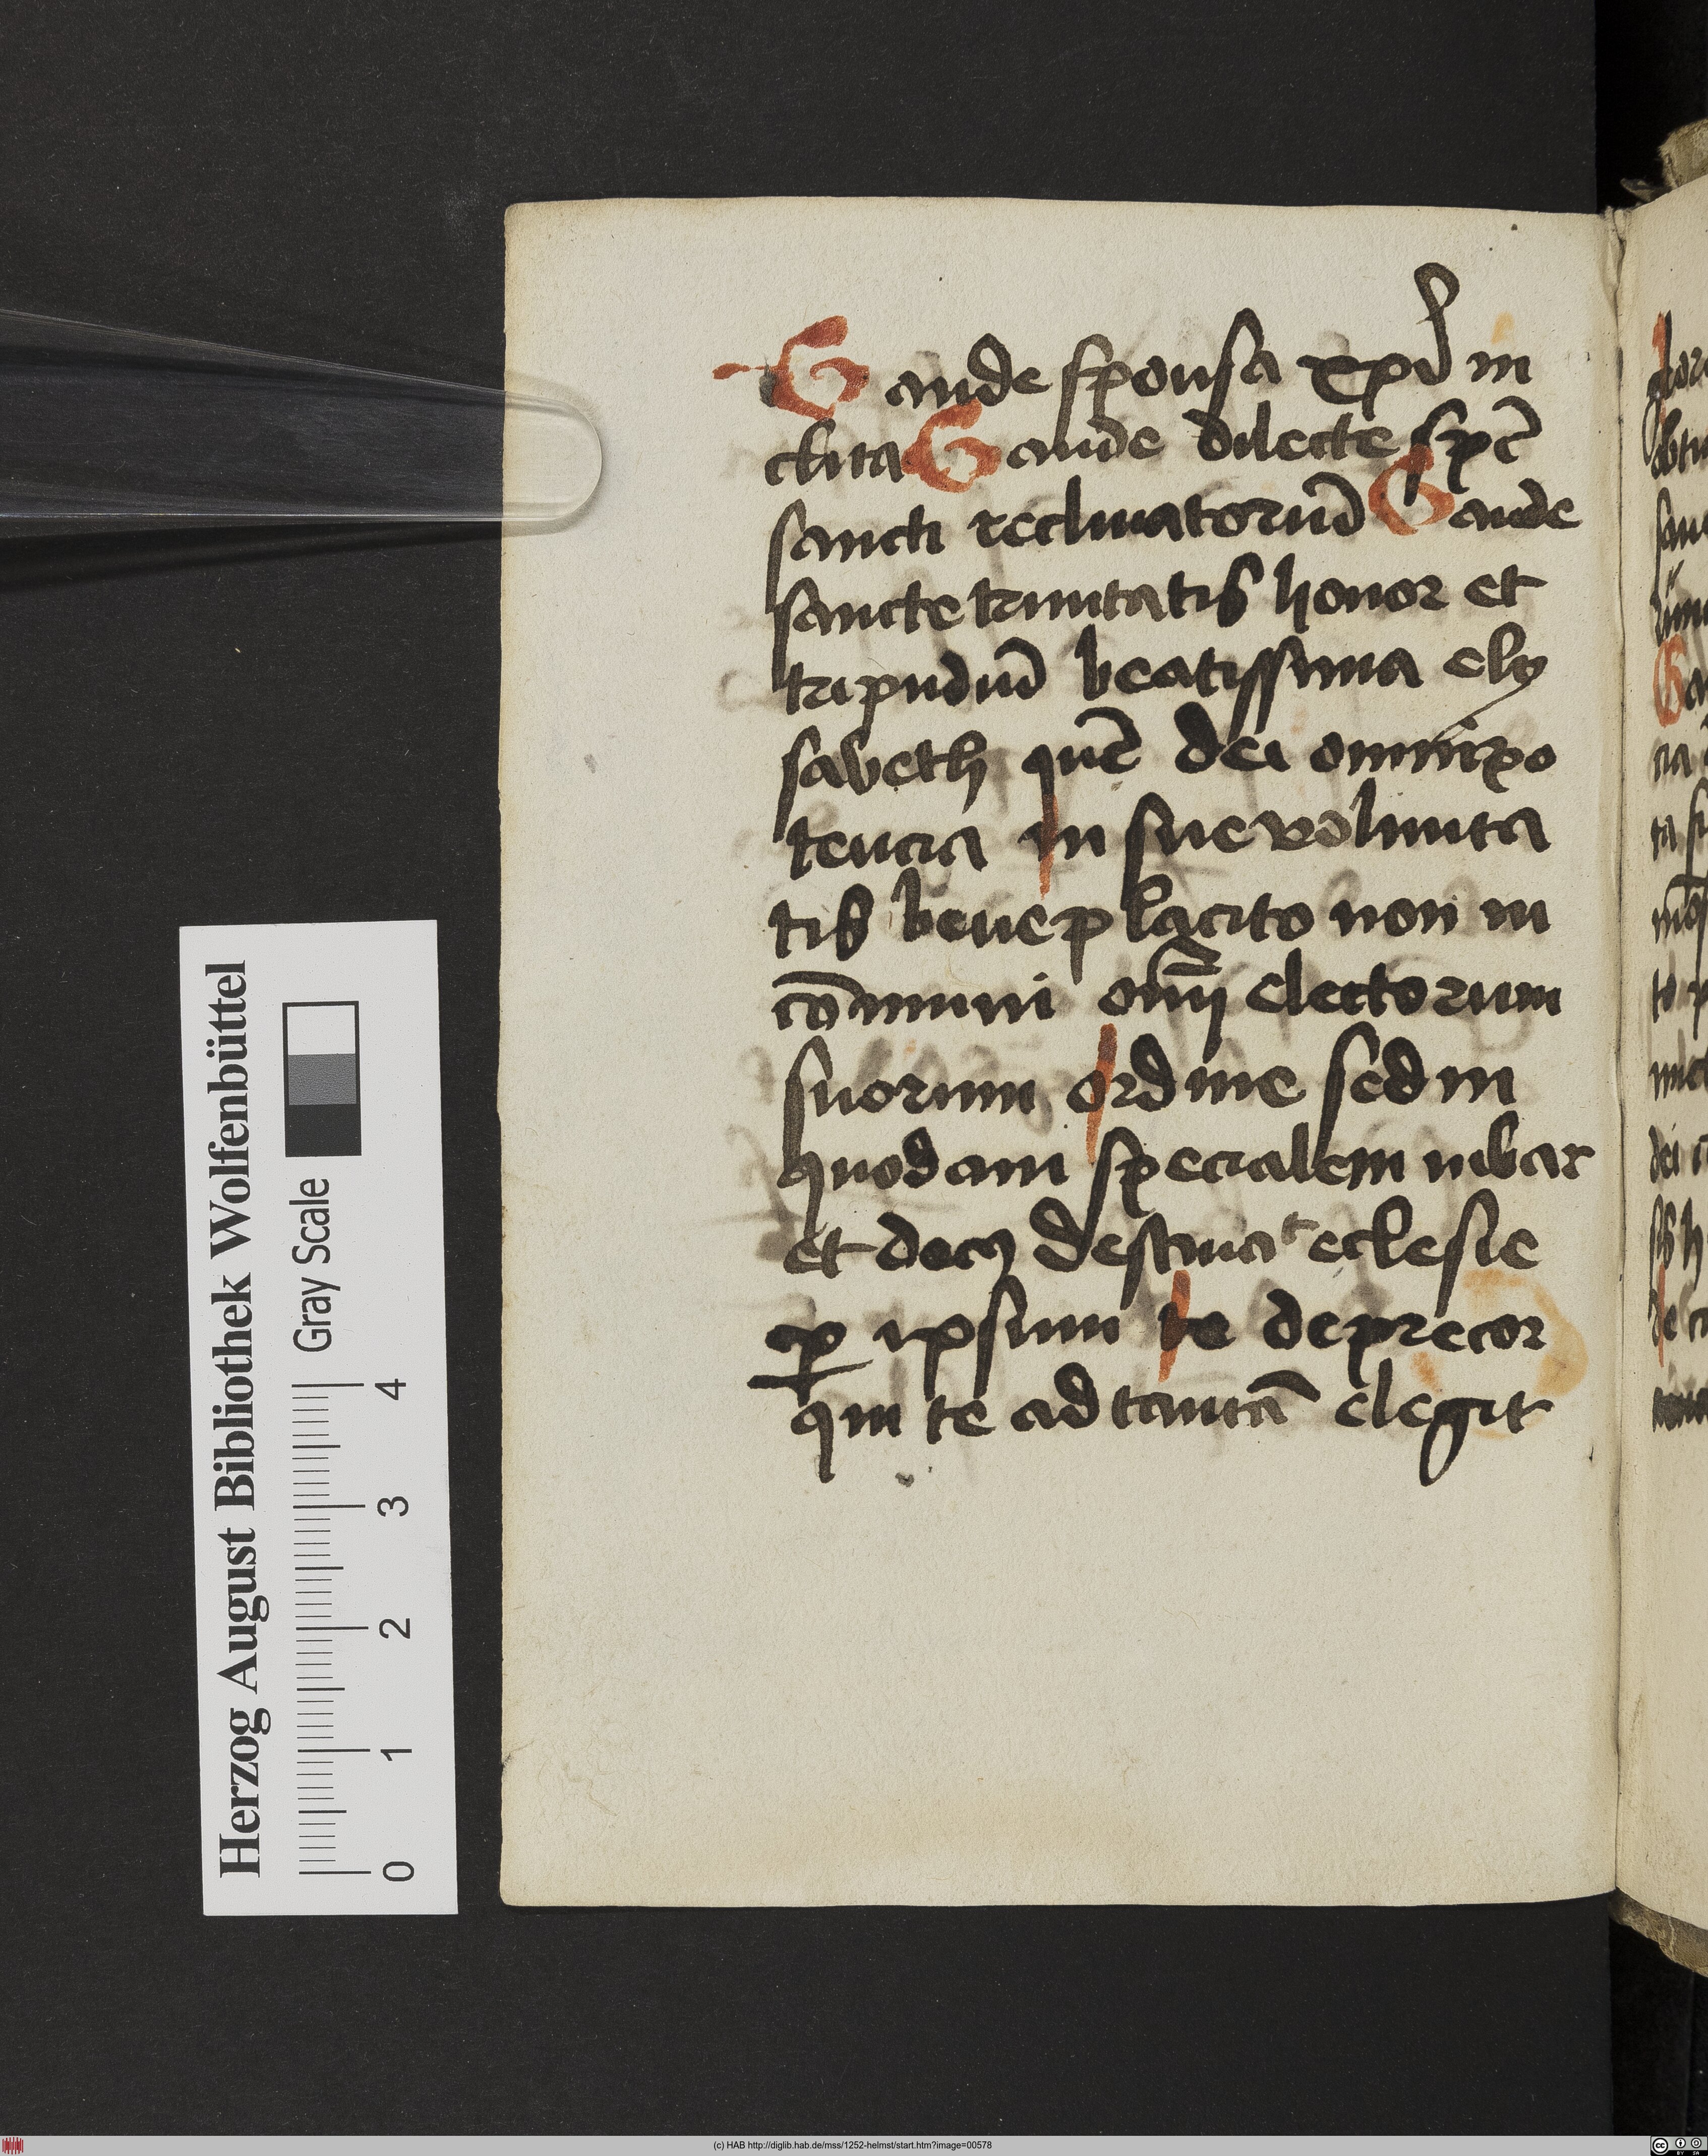 Gaude sponsa xpi in
clita Gaude dilecte spc̄
sancti reclinatoriū Gaude
sancte trinitatis honor et
tripudiū beatissima ely
sabeth quē dei omnipo
tencia in sue volunta
tis beneplacito non in
cōmuni om̄i electorum
suorum ordine sed in
quodam specialem iubar
et decꝰ destinat eclesie
ꝑ ipsum te deprecor
qui te ad tantā elegit
Herzog August Bibliothek Wolfenbüttel
Gray Scale
0 1 2 3 4
(c) HAB http://diglib.hab.de/mss/1252-helmst/start.htm?image=00578